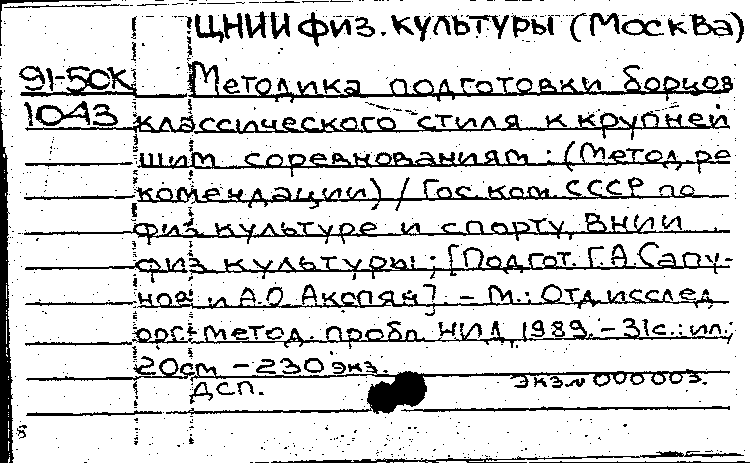 ЦНИИ физ. культуры (Москва)
91-50К Методика подготовки борцов
1043 классического стиля к крупней
шим соревнованиям: (Метод. ре
комендации) / Гос. ком. СССР по
физ. культуре и спорту, ВНИИ
физ. культуры; [Подгот. Г.А. Сапу-
нов и А.О. Акопян]. – М.: Отд. исслед
орг.-метод. пробл. НИД, 1989. – 31с.: ил.;
20см – 230 экз.
ДСП. Экз. № 000003.
8